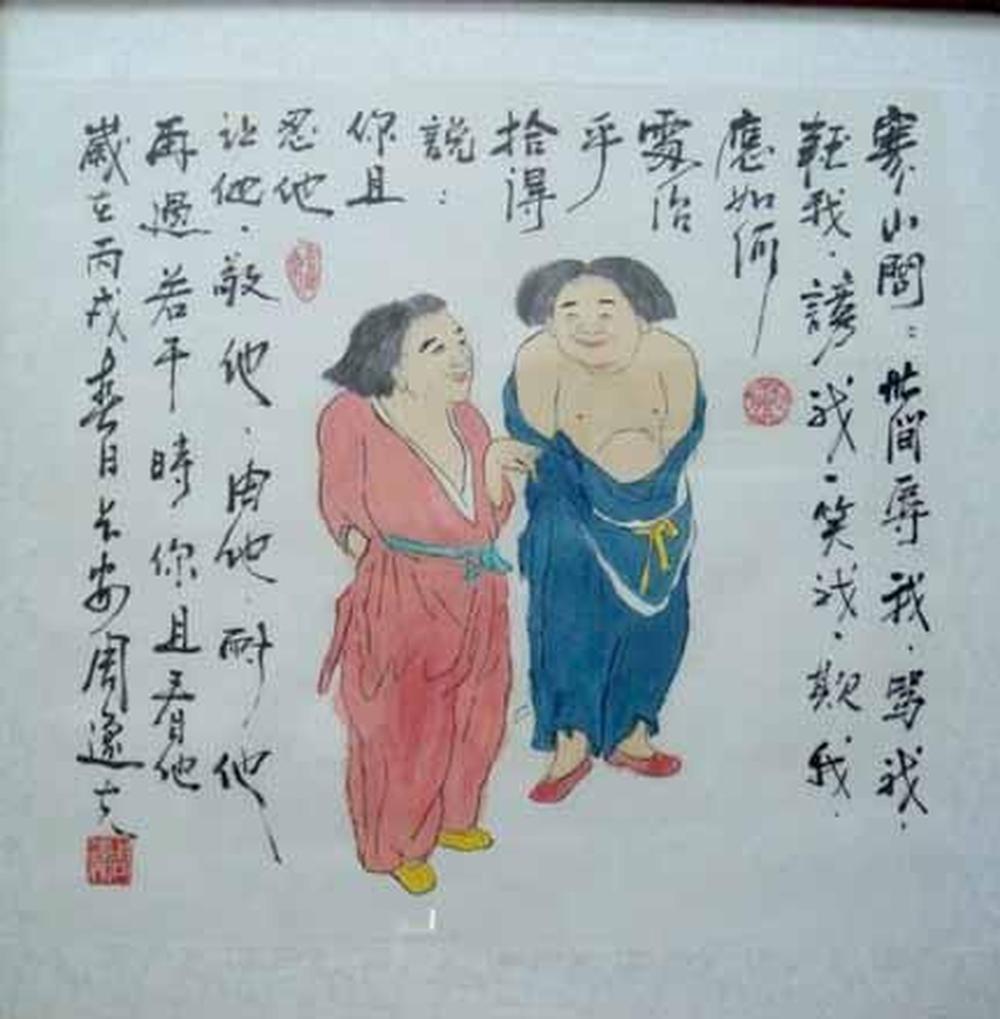 寒山問：世間辱我·罵我·
輕我·謗我·笑我·欺我·
應如何
處治
乎
拾得
說：
你且
忍他
让他·敬他·由他·耐他
再過若干時你且看他
歲在丙戌春日长安周逢